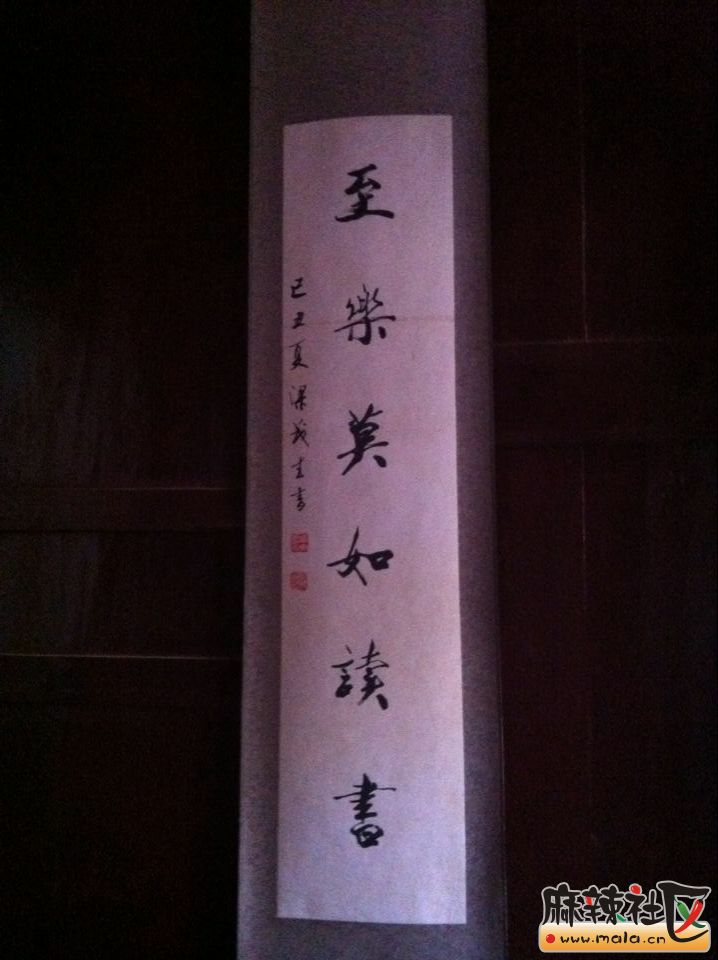 至樂莫如讀書
己丑夏梁茂生書
麻辣社区
www.mala.cn